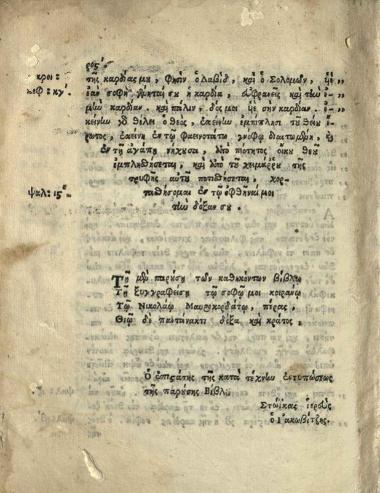 ϛοϛ´
κροι: τῆς καρδίας μȣ, φησὶν ὁ Δαβίδ, καὶ ὁ Σολομῶν, υἱὲ
κεφ: κγ´. ἐὰν σοφὴ γένηταί σȣ ἡ καρδία, εὐφρανεῖς καὶ τὴν ἐ-
μὴν καρδίαν. καὶ πάλιν, δός μοι υἱὲ σὴν καρδίαν.
κείνην γὸ θέλει ὁ Θεὸς, ἐκείνην ἐμπιπλῆσι τȣ͂ θείȣ
ἔρωτος, ἐκείνη ἐν τῷ φαεινοτάτῳ γνόφῳ διαιτωμένη, ἢ
ἐν τῇ ἀγάπῃ, ἀπὸ πιότητος οἴκȣ θεȣ͂
ἐμπλησθήσεται, καὶ ἀπὸ τȣ͂ χειμάῤῥȣ τῆς
τρυφῆς αὐτȣ͂ ποτισθήσεται, χορ-
ψαλ: 15´. τασθήσομαι ἐν τῷ ὀφθῆναί μοι
τὴν δόξαν σȣ.
Τῇ μὲν παρȣ́σῃ τῶν καθηκόντων βίβλῳ
Τῇ ξυγγραφείσῃ τῷ σοφῷ μοι κοιράνῳ
Τῷ Νικολάῳ Μαυροκορδάτῳ, πέρας,
Θεῷ δὲ παντάνακτι δόξα, καὶ κράτος.
Ὁ ἐπιϛάτης τῆς κατὰ τέχνην ἐντυπώσεως
τῆς παρȣ́σης Βίβλȣ
Στόϊκας ἱερεὺς
ὁ Ἰακωβίτζης.